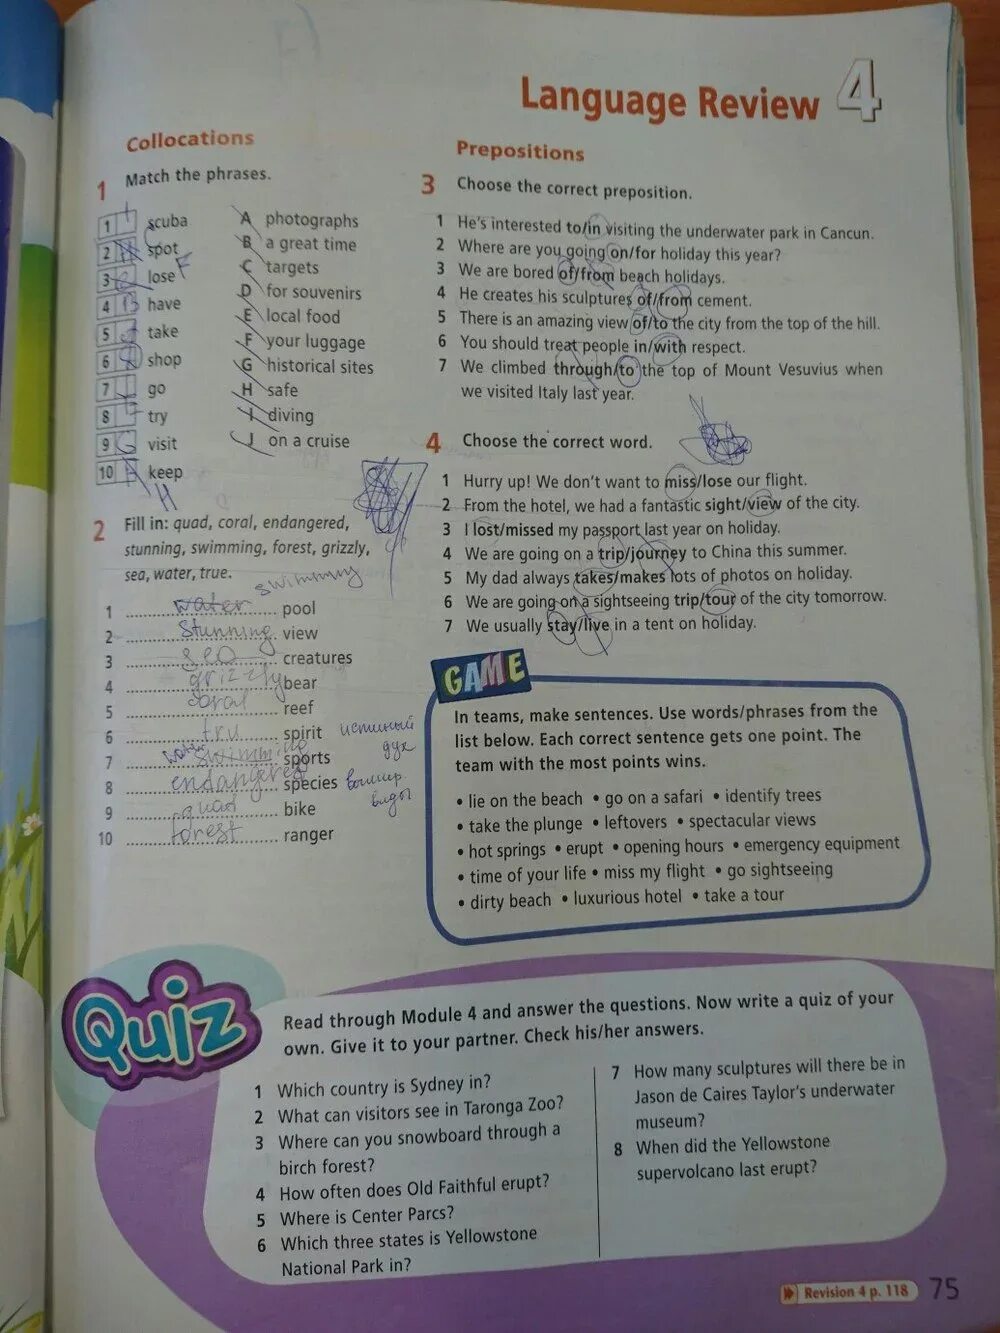 Language Review 4
Collocations
1 Match the phrases.
1 scuba
2 spot
3 lose F
4 B have
5 take
6 shop
7 go
8 try
9 G visit
10 keep
H
A photographs
B a great time
C targets
D for souvenirs
E local food
F your luggage
G historical sites
H safe
I diving
J on a cruise
2 Fill in: quad, coral, endangered,
stunning, swimming, forest, grizzly,
sea, water, true.
swimming
1 water pool
2 stunning view
3 sea creatures
4 grizzly bear
5 coral reef
6 tru spirit истиный
дух
7 water swimming sports
8 endangered species вымир
виды
9 quad bike
10 forest ranger
Prepositions
3 Choose the correct preposition.
1 He's interested to/in visiting the underwater park in Cancun.
2 Where are you going on/for holiday this year?
3 We are bored of/from beach holidays.
4 He creates his sculptures of/from cement.
5 There is an amazing view of/to the city from the top of the hill.
6 You should treat people in/with respect.
7 We climbed through/to the top of Mount Vesuvius when
we visited Italy last year.
4 Choose the correct word.
1 Hurry up! We don't want to miss/lose our flight.
2 From the hotel, we had a fantastic sight/view of the city.
3 I lost/missed my passport last year on holiday.
4 We are going on a trip/journey to China this summer.
5 My dad always takes/makes lots of photos on holiday.
6 We are going on a sightseeing trip/tour of the city tomorrow.
7 We usually stay/live in a tent on holiday.
GAME
In teams, make sentences. Use words/phrases from the
list below. Each correct sentence gets one point. The
team with the most points wins.
• lie on the beach • go on a safari • identify trees
• take the plunge • leftovers • spectacular views
• hot springs • erupt • opening hours • emergency equipment
• time of your life • miss my flight • go sightseeing
• dirty beach • luxurious hotel • take a tour
Quiz
Read through Module 4 and answer the questions. Now write a quiz of your
own. Give it to your partner. Check his/her answers.
1 Which country is Sydney in?
2 What can visitors see in Taronga Zoo?
3 Where can you snowboard through a
birch forest?
4 How often does Old Faithful erupt?
5 Where is Center Parcs?
6 Which three states is Yellowstone
National Park in?
7 How many sculptures will there be in
Jason de Caires Taylor's underwater
museum?
8 When did the Yellowstone
supervolcano last erupt?
Revision 4 p. 118 75